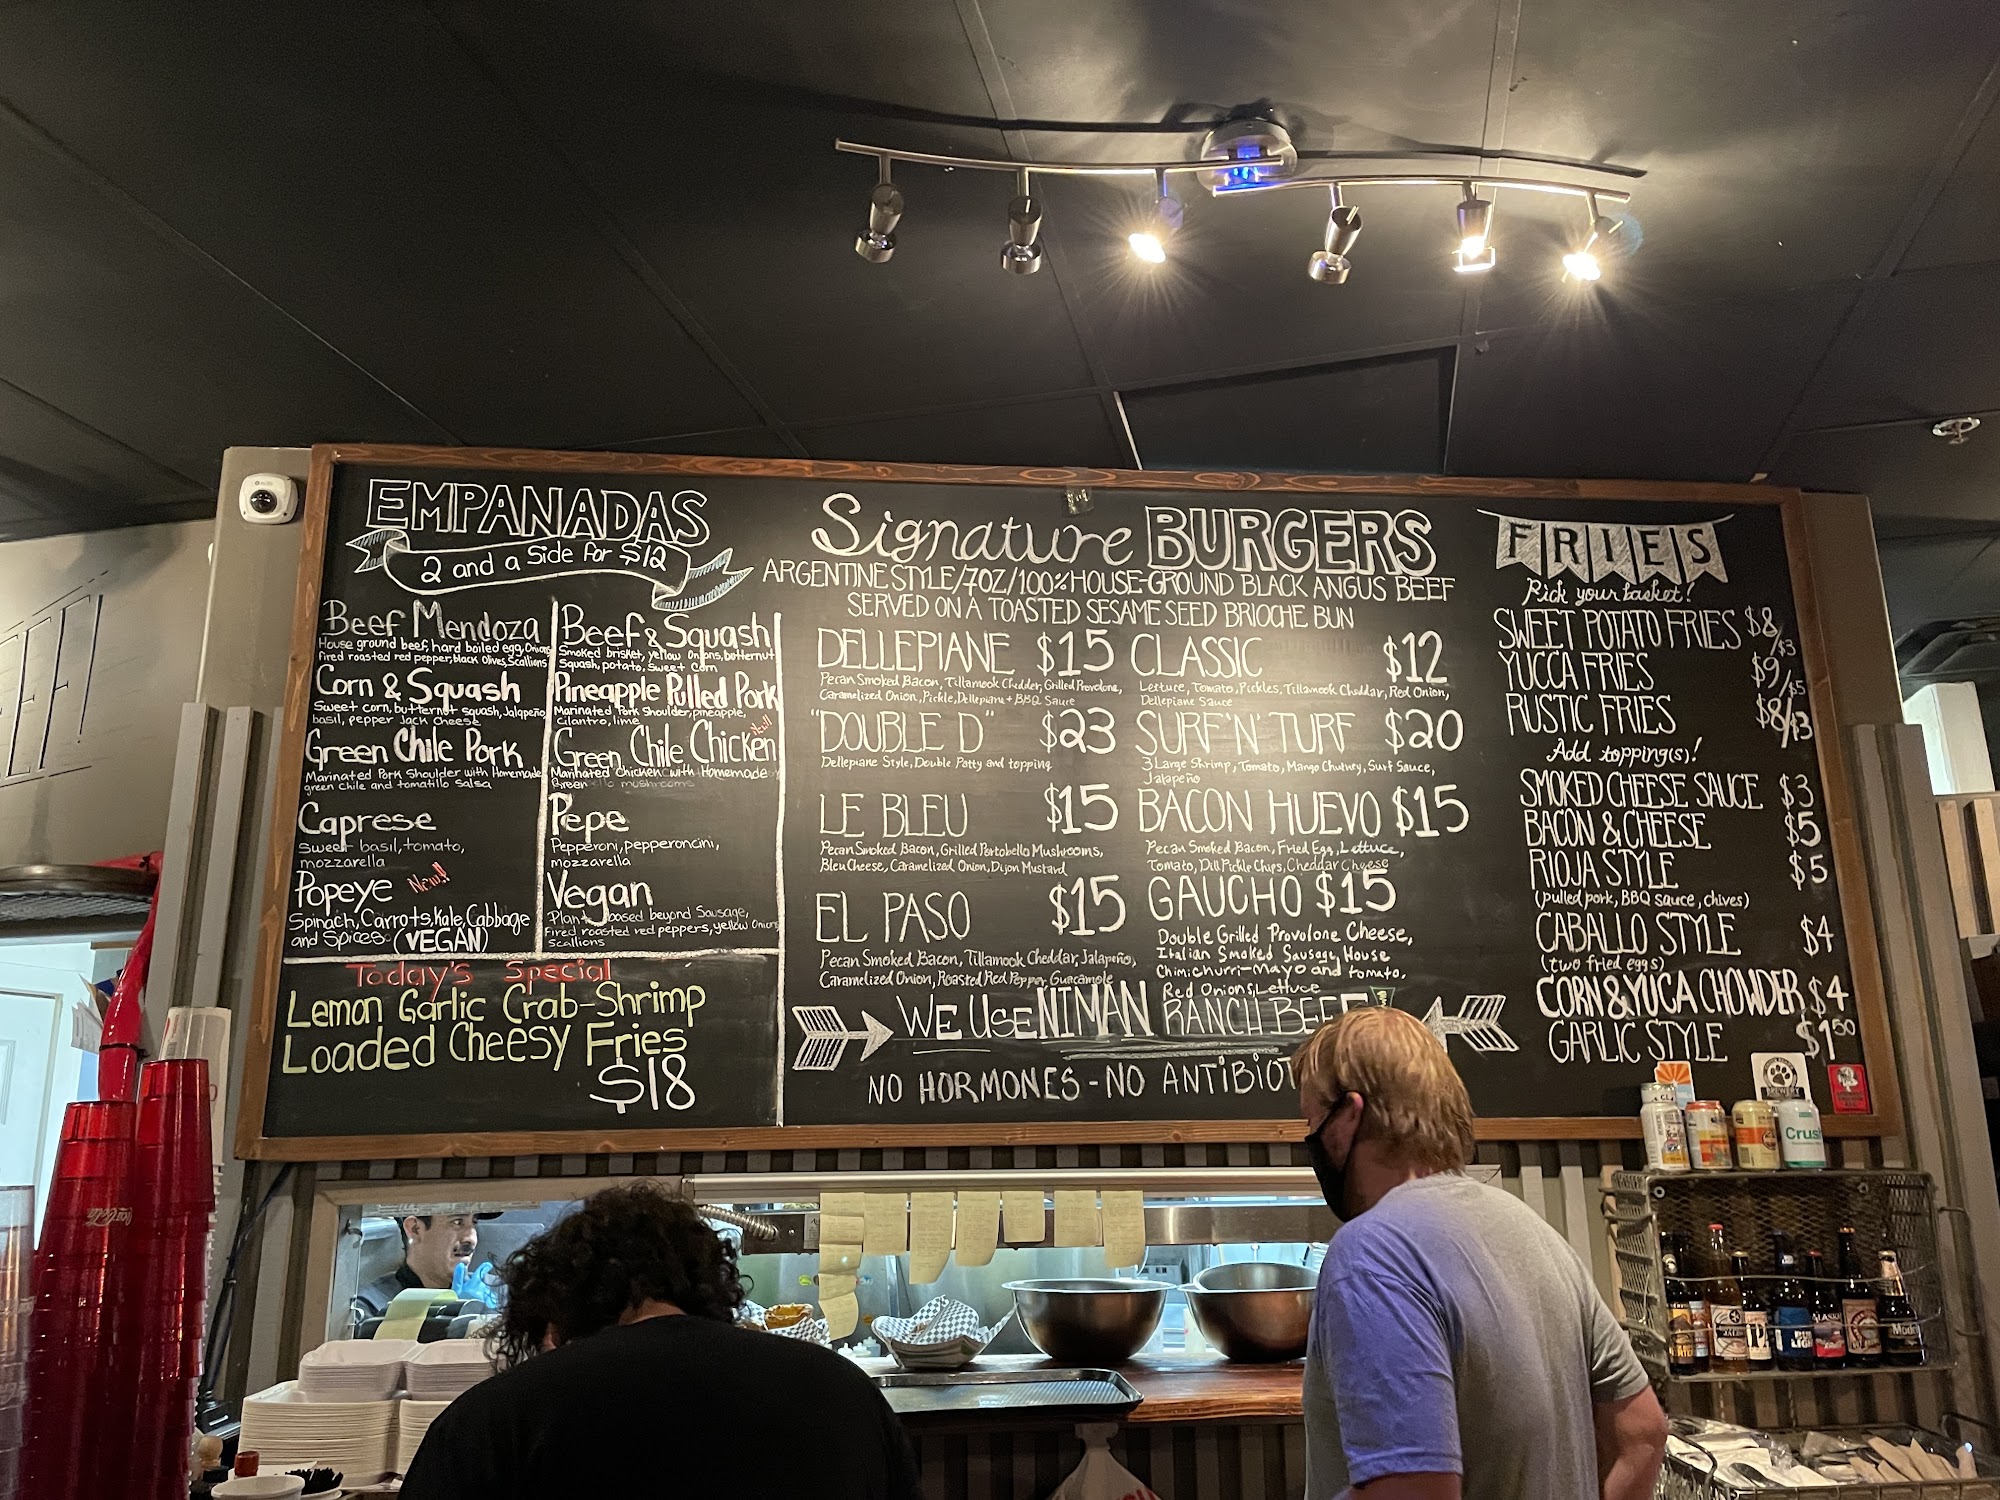 EMPANADAS
2 and a Side for $12
Beef Mendoza
House ground beef, hard boiled egg, Onions
fired roasted red pepper, black olives, Scallions
Corn & Squash
Sweet corn, butternut squash, Jalapeño
basil, pepper Jack Cheese
Green Chile Pork
Marinated Pork Shoulder with Homemade
green Chile and tomatillo Salsa
Caprese
Sweet basil, tomato,
mozzarella
Popeye New!!
Spinach, Carrots, Kale, Cabbage
and Spices (VEGAN)
Beef & Squash
Smoked brisket, yellow onions, botternut
Squash, potato, Sweet Corn
Pineapple Pulled Pork
Marinated Pork Shoulder, pineapple,
Cilantro, lime
New!!
Green Chile Chicken
Marinated Chicken with Homemade
Green mushrooms
Pepe
Pepperoni, pepperoncini,
mozzarella
Vegan
Plant based beyond Sausage,
Fired roasted red peppers, yellow Onions
Scallions
Today's Special
Lemon Garlic Crab-Shrimp
Loaded Cheesy Fries
$18
Signature BURGERS
ARGENTINE STYLE/7OZ/100% HOUSE-GROUND BLACK ANGUS BEEF
SERVED ON A TOASTED SESAME SEED BRIOCHE BUN
DELLEPIANE $15
Pecan Smoked Bacon, Tillamook Chedder, Grilled Provolone,
Caramelized Onion, Pickle, Dellepiane + BBQ Sauce
"DOUBLE D" $23
Dellepiane Style, Double Patty and topping
LE BLEU $15
Pecan Smoked Bacon, Grilled Portobello Mushrooms,
Bleu Cheese, Caramelized Onion, Dijon Mustard
EL PASO $15
Pecan Smoked Bacon, Tillamook Cheddar, Jalapeño,
Caramelized Onion, Roasted Red Pepper, Guacamole
CLASSIC $12
Lettuce, Tomato, Pickles, Tillamook Cheddar, Red Onion,
Dellepiane Sauce
SURF 'N' TURF $20
3 Large Shrimp, Tomato, Mango Chutney, Surf Sauce,
Jalapeño
BACON HUEVO $15
Pecan Smoked Bacon, Fried Egg, Lettuce,
Tomato, Dill Pickle Chips, Cheddar Cheese
GAUCHO $15
Double Grilled Provolone Cheese,
Italian Smoked Sausage, House
Chimichurri-Mayo and tomato.
Red Onions, Lettuce
WE USE NIMAN RANCH BEEF
NO HORMONES - NO ANTIBIOT
FRIES
Pick your basket!
SWEET POTATO FRIES $8/$3
YUCCA FRIES $9/$5
RUSTIC FRIES $8/$3
Add topping(s)!
SMOKED CHEESE SAUCE $3
BACON & CHEESE $5
RIOJA STYLE $5
(pulled pork, BBQ sauce, chives)
CABALLO STYLE $4
(two fried eggs)
CORN & YUCA CHOWDER $4
GARLIC STYLE $1⁵⁰
Crus
Coca-Cola